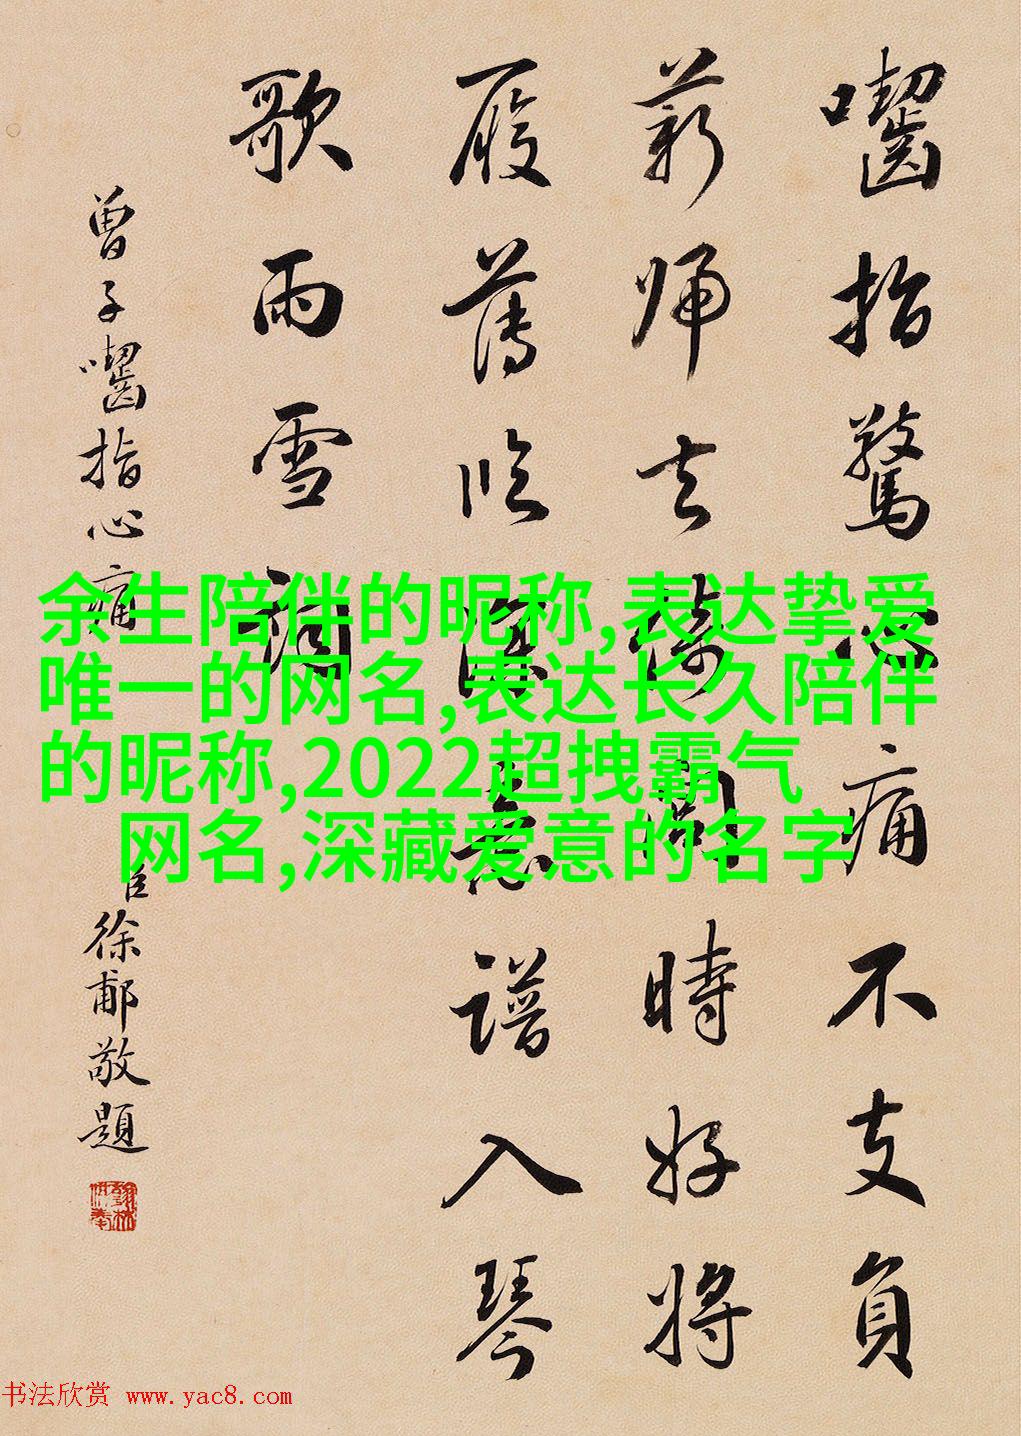 囓指驚心痛不支負
薪歸去倚閭時好將
履薄臨深意譜入琴
歌雨雪詞
曾子囓指心痛
臣徐郙敬題
余生陪伴的昵称,表达挚爱
唯一的网名,表达长久陪伴
的昵称,2022超拽霸气
网名,深藏爱意的名字
书法欣赏 www.yac8.com